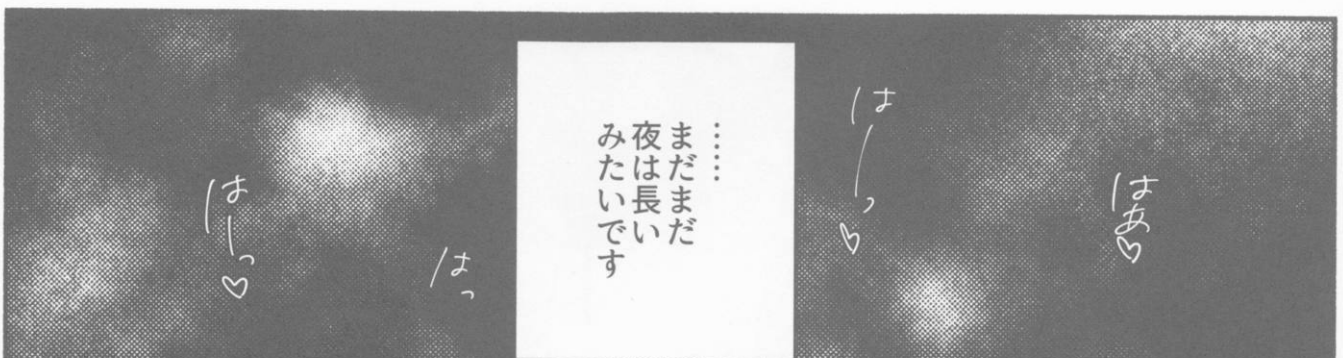 はあ♡
はーっ♡
……
まだまだ
夜は長い
みたいです
はっ
はーっ♡